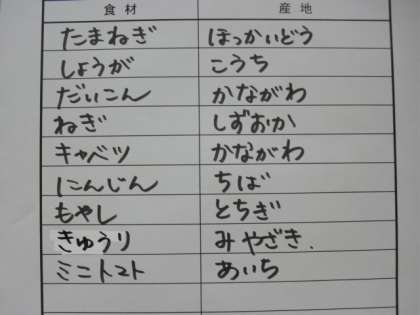 食材 産地
たまねぎ ほっかいどう
しょうが こうち
だいこん かながわ
ねぎ しずおか
キャベツ かながわ
にんじん ちば
もやし とちぎ
きゅうり みやざき.
ミニトマト あいち